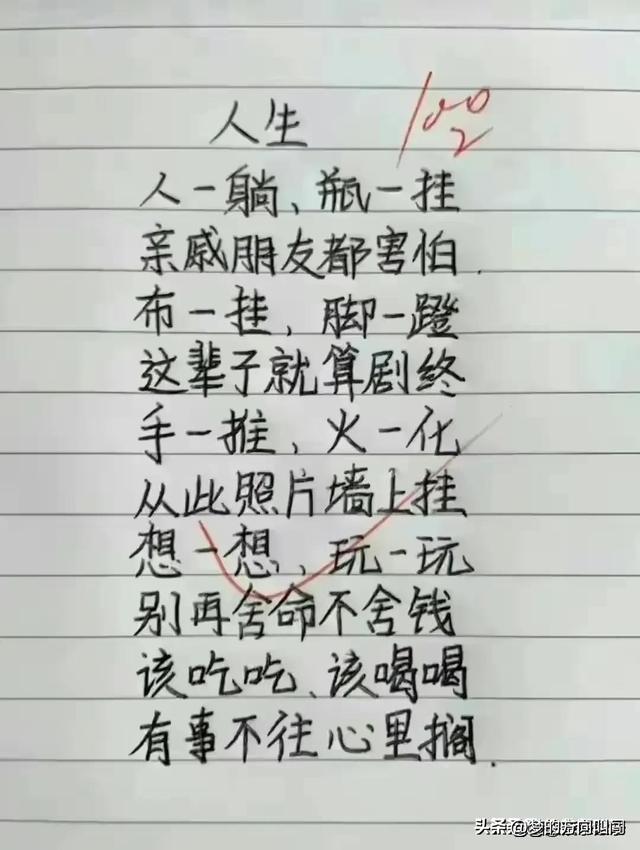 人生
100
2
人一躺、瓶一挂
亲戚朋友都害怕.
布一挂,脚一蹬
这辈子就算剧终
手一推,火一化
从此照片墙上挂
想一想、玩一玩
别再舍命不舍钱
该吃吃、该喝喝
有事不往心里搁.
头条